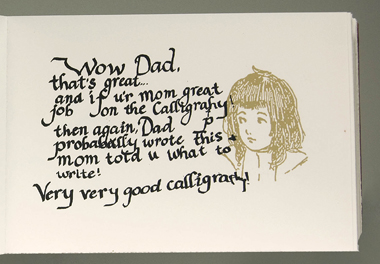 Wow Dad,
that's great...
and if u'r mom great
job on the Calligraphy!
then again, Dad
probabally wrote this +
mom told u what to
write!
Very very good calligraphy!